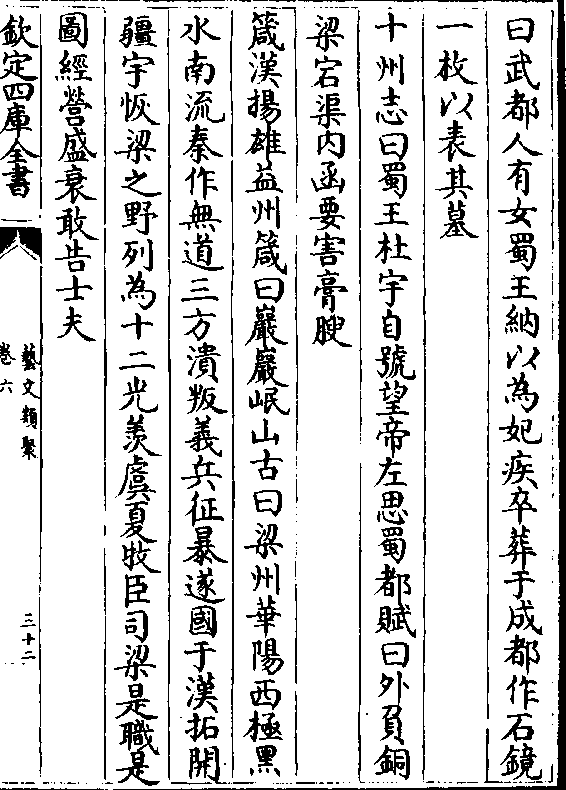 曰武都人有女蜀王納以為妃疾卒葬于成都作石鏡
一枚以表其墓
十州志曰蜀王杜宇自號望帝左思蜀都賦曰外負銅
梁宕渠内函要害膏腴
箴漢揚雄益州箴曰巖巖岷山古曰梁州華陽西極黑
水南流秦作無道三方潰叛義兵征暴遂國于漢拓開
疆宇恢梁之野列為十二光羨虞夏牧臣司梁是職是
圖經營盛衰敢告士夫
欽定四庫全書
藝文類聚
卷六
三十二